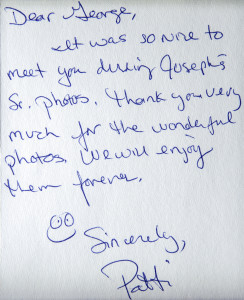 Dear George,
It was so nice to
meet you during Joseph's
Sr. photos. Thank you very
much for the wonderful
photos. We will enjoy
them forever.
Sincerely,
Patti